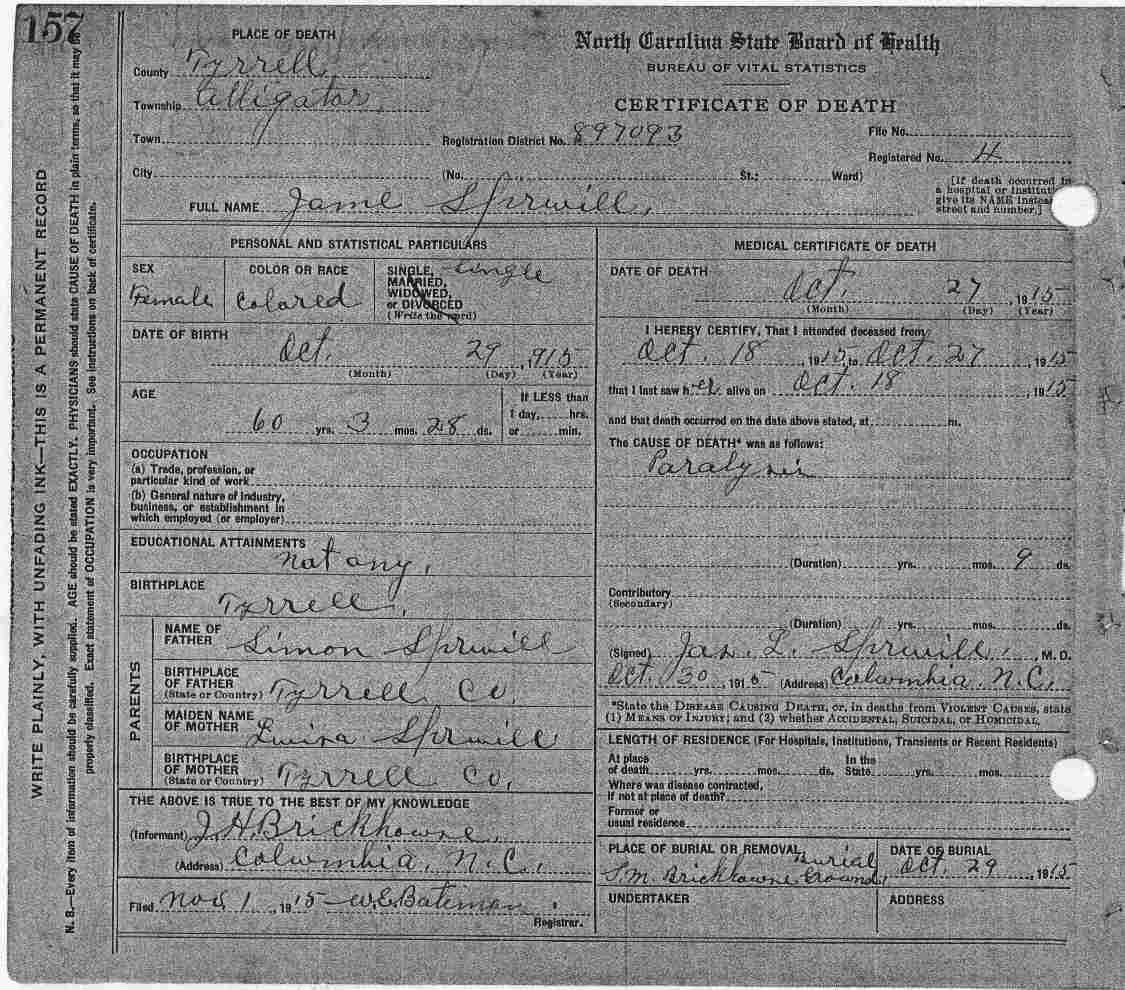 157
PLACE OF DEATH
County Tyrrell
Township Alligator
Town
City
North Carolina State Board of Health
BUREAU OF VITAL STATISTICS
CERTIFICATE OF DEATH
Registration District No. 897093
File No.
Registered No. 4
(No. St.; Ward)
[If death occurred in
a hospital or institut
give its NAME instea
street and number.]
FULL NAME Jane Spruill
PERSONAL AND STATISTICAL PARTICULARS
SEX
Female
COLOR OR RACE
Colored
SINGLE,
MARRIED,
WIDOWED,
or DIVORCED
(Write the word)
Single
DATE OF BIRTH
Oct. 29, 915
(Month) (Day) (Year)
AGE
60 yrs. 3 mos. 28 ds.
If LESS than
1 day, hrs.
or min.
OCCUPATION
(a) Trade, profession, or
particular kind of work
(b) General nature of industry,
business, or establishment in
which employed (or employer)
EDUCATIONAL ATTAINMENTS
not any.
BIRTHPLACE
Tyrrell.
PARENTS
NAME OF
FATHER Simon Spruill
BIRTHPLACE
OF FATHER
(State or Country) Tyrrell Co.
MAIDEN NAME
OF MOTHER Spruill
BIRTHPLACE
OF MOTHER
(State or Country) Tyrrell Co.
THE ABOVE IS TRUE TO THE BEST OF MY KNOWLEDGE
(Informant) J.H. Brickhouse.
(Address) Columbia, N.C.
Filed Nov 1, 1915 W.E. Bateman.
Registrar.
MEDICAL CERTIFICATE OF DEATH
DATE OF DEATH
Oct. 27, 1915
(Month) (Day) (Year)
I HEREBY CERTIFY, That I attended deceased from
Oct. 18, 1915, to Oct. 27, 1915
that I last saw her alive on Oct. 18, 1915
and that death occurred on the date above stated, at m.
The CAUSE OF DEATH* was as follows:
Paralysis
(Duration) yrs. mos. 9 ds.
Contributory
(Secondary)
(Duration) yrs. mos. ds.
(Signed) Jas. L. Spruill, M. D.
Oct. 30, 1915 (Address) Columbia, N.C.
*State the DISEASE CAUSING DEATH, or, in deaths from VIOLENT CAUSES, state
(1) MEANS OF INJURY; and (2) whether ACCIDENTAL, SUICIDAL, or HOMICIDAL.
LENGTH OF RESIDENCE (For Hospitals, Institutions, Transients or Recent Residents)
At place
of death yrs. mos. ds.
In the
State yrs. mos.
Where was disease contracted,
if not at place of death?
Former or
usual residence
PLACE OF BURIAL OR REMOVAL
Burial
S.M. Brickhouse Ground
DATE OF BURIAL
Oct. 29, 1915
UNDERTAKER
ADDRESS
WRITE PLAINLY, WITH UNFADING INK—THIS IS A PERMANENT RECORD
N. B.—Every item of information should be carefully supplied. AGE should be stated EXACTLY. PHYSICIANS should state CAUSE OF DEATH in plain terms, so that it may be
properly classified. Exact statement of OCCUPATION is very important. See instructions on back of certificate.